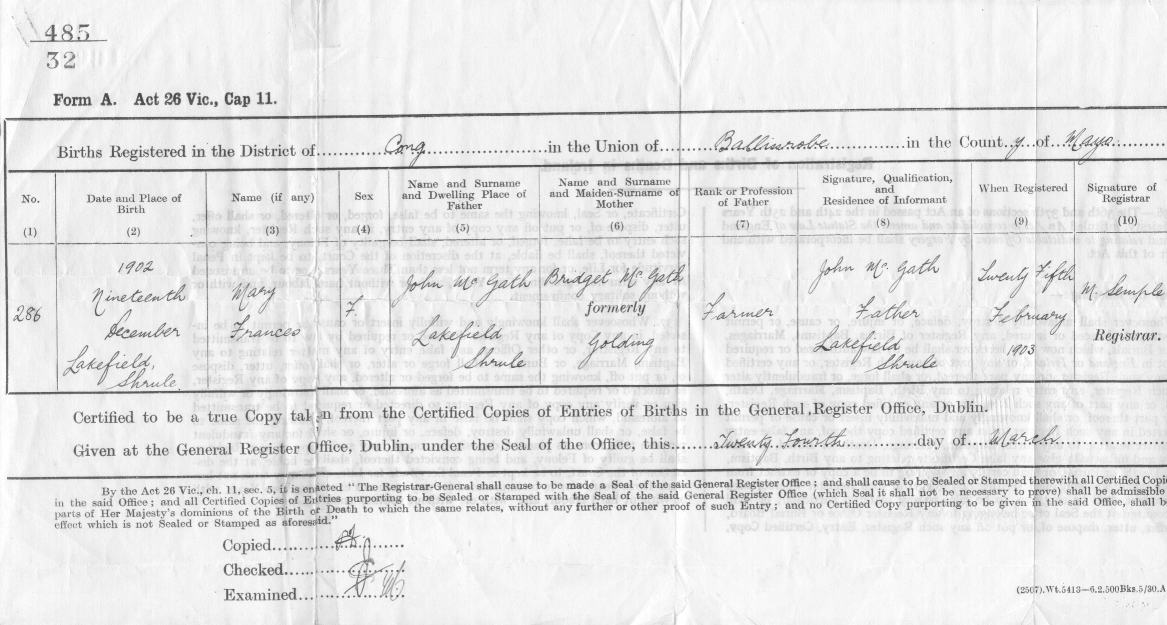 485
32
Form A. Act 26 Vic., Cap 11.
Births Registered in the District of Cong in the Union of Ballinrobe in the County of Mayo
No.
(1)
Date and Place of
Birth
(2)
Name (if any)
(3)
Sex
(4)
Name and Surname
and Dwelling Place of
Father
(5)
Name and Surname
and Maiden-Surname of
Mother
(6)
Rank or Profession
of Father
(7)
Signature, Qualification,
and
Residence of Informant
(8)
When Registered
(9)
Signature of
Registrar
(10)
286
1902
Nineteenth
December
Lakefield,
Shrule
Mary
Frances
F.
John McGath
Lakefield
Shrule
Bridget McGath
formerly
Golding
Farmer
John McGath
Father
Lakefield
Shrule
Twenty Fifth
February
1903
M. Semple
Registrar.
Certified to be a true Copy taken from the Certified Copies of Entries of Births in the General Register Office, Dublin.
Given at the General Register Office, Dublin, under the Seal of the Office, this Twenty Fourth day of March
By the Act 26 Vic., ch. 11, sec. 5, it is enacted "The Registrar-General shall cause to be made a Seal of the said General Register Office; and shall cause to be Sealed or Stamped therewith all Certified Copie
in the said Office; and all Certified Copies of Entries purporting to be Sealed or Stamped with the Seal of the said General Register Office (which Seal it shall not be necessary to prove) shall be admissible
parts of Her Majesty's dominions of the Birth or Death to which the same relates, without any further or other proof of such Entry; and no Certified Copy purporting to be given in the said Office, shall b
effect which is not Sealed or Stamped as aforesaid."
Copied
Checked
Examined
(2507).Wt.5413—6.2.500Bks.5/30.A